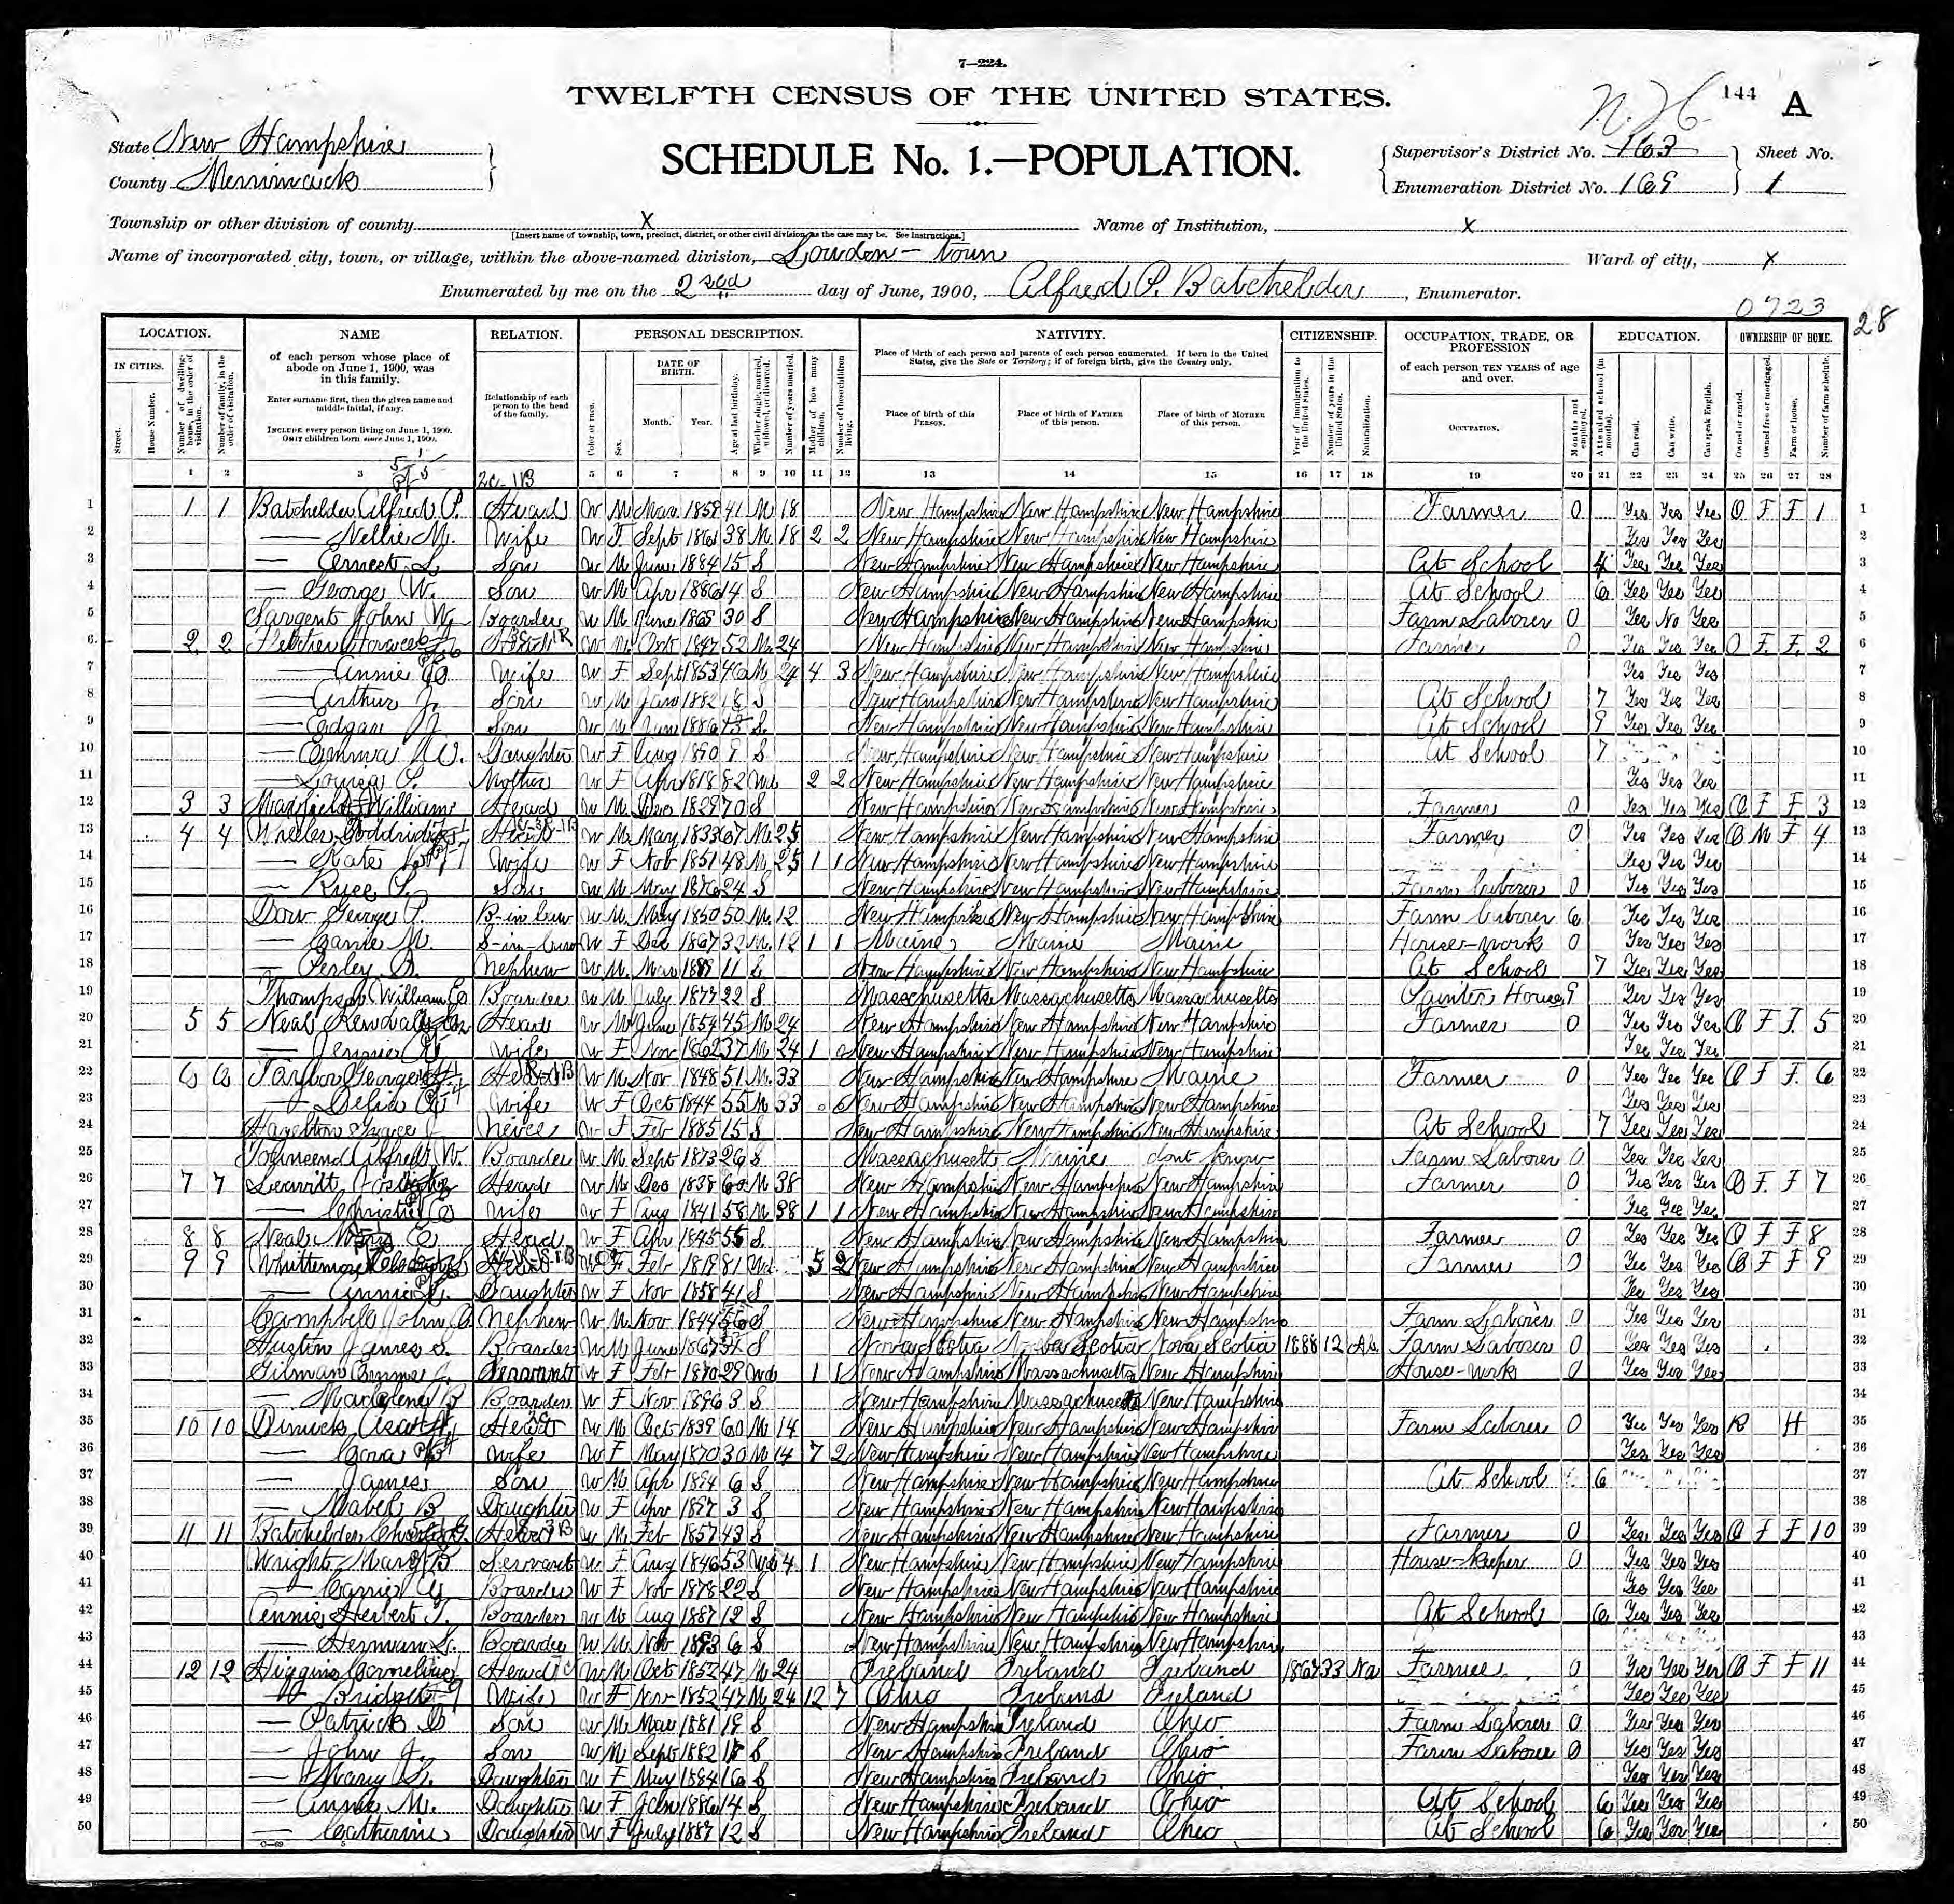 7—224.
TWELFTH CENSUS OF THE UNITED STATES.
N. H. 144 A
State New Hampshire
County Merrimack
SCHEDULE No. 1.—POPULATION.
Supervisor's District No. 163
Enumeration District No. 169
Sheet No. 1
Township or other division of county X Name of Institution, X
[Insert name of township, town, precinct, district, or other civil division, as the case may be. See instructions.]
Name of incorporated city, town, or village, within the above-named division, Loudon - town Ward of city, X
Enumerated by me on the 2 day of June, 1900, Alfred P. Batchelder, Enumerator.
28
LOCATION. NAME RELATION. PERSONAL DESCRIPTION. NATIVITY. CITIZENSHIP. OCCUPATION, TRADE, OR PROFESSION EDUCATION. OWNERSHIP OF HOME.
IN CITIES. Street. House Number. Number of dwelling-house, in the order of visitation. Number of family, in the order of visitation.
of each person whose place of abode on June 1, 1900, was in this family.
Enter surname first, then the given name and middle initial, if any.
INCLUDE every person living on June 1, 1900. OMIT children born since June 1, 1900.
Relationship of each person to the head of the family.
Color or race. Sex. DATE OF BIRTH. Month. Year. Age at last birthday. Whether single, married, widowed, or divorced. Number of years married. Mother of how many children. Number of these children living.
Place of birth of each person and parents of each person enumerated. If born in the United States, give the State or Territory; if of foreign birth, give the Country only.
Place of birth of this PERSON. Place of birth of FATHER of this person. Place of birth of MOTHER of this person.
Year of immigration to the United States. Number of years in the United States. Naturalization.
of each person TEN YEARS of age and over.
OCCUPATION. Months not employed. Attended school (in months). Can read. Can write. Can speak English. Owned or rented. Owned free or mortgaged. Farm or house. Number of farm schedule.
1 2 3 5 6 7 8 9 10 11 12 13 14 15 16 17 18 19 20 21 22 23 24 25 26 27 28
1 1 1 Batchelder Alfred P. Head W M Mar 1859 41 M 18 New Hampshire New Hampshire New Hampshire Farmer 0 Yes Yes Yes O F F 1
2 — Nellie M. Wife W F Sept 1861 38 M 18 2 2 New Hampshire New Hampshire New Hampshire Yes Yes Yes
3 — Ernest L Son W M June 1884 15 S New Hampshire New Hampshire New Hampshire At School 4 Yes Yes Yes
4 — George W. Son W M Apr 1886 14 S New Hampshire New Hampshire New Hampshire At School 6 Yes Yes Yes
5 Sargent John W. Boarder W M June 30 S New Hampshire New Hampshire New Hampshire Farm Laborer 0 Yes No Yes
6 2 2 Fletcher Horace Head W M Oct 1847 52 M 24 New Hampshire New Hampshire New Hampshire Farmer 0 Yes Yes Yes O F F 2
7 — Annie Wife W F Sept 1853 46 M 24 4 3 New Hampshire New Hampshire New Hampshire Yes Yes Yes
8 — Arthur J. Son W M Jan 1882 18 S New Hampshire New Hampshire New Hampshire At School 7 Yes Yes Yes
9 — Edgar Son W M S New Hampshire New Hampshire New Hampshire At School 9 Yes Yes Yes
10 — Emma W. Daughter W F Aug 1890 9 S New Hampshire New Hampshire New Hampshire At School 7
11 — Louisa P. Mother W F Apr 1818 82 Wd 2 2 New Hampshire New Hampshire New Hampshire Yes Yes Yes
12 3 3 William Head W M Dec 1829 70 S New Hampshire New Hampshire New Hampshire Farmer 0 Yes Yes Yes O F F 3
13 4 4 Wheeler Head W M May 1833 67 M 25 New Hampshire New Hampshire New Hampshire Farmer 0 Yes Yes Yes O M F 4
14 — Kate Wife W F Nov 1851 48 M 25 1 1 New Hampshire New Hampshire New Hampshire Yes Yes Yes
15 — Son W M May 1876 24 S New Hampshire New Hampshire New Hampshire Farm Laborer 0 Yes Yes Yes
16 Dow George P. B-in-law W M May 1850 50 M 12 New Hampshire New Hampshire New Hampshire Farm Laborer 6 Yes Yes Yes
17 — Carrie M. S-in-law W F Dec 1867 32 M 12 1 1 Maine Maine Maine House-work 0 Yes Yes Yes
18 — Perley B. Nephew W M Mar 1889 11 S New Hampshire New Hampshire New Hampshire At School 7 Yes Yes Yes
19 Thompson William E Boarder W M July 1877 22 S Massachusetts Massachusetts Massachusetts Painter House 9 Yes Yes Yes
20 5 5 Neal Kendall Head W M June 1854 45 M 24 New Hampshire New Hampshire New Hampshire Farmer 0 Yes Yes Yes O F F 5
21 — Jennie Wife W F Nov 1862 37 M 24 1 0 New Hampshire New Hampshire New Hampshire Yes Yes Yes
22 6 6 Taylor George Head W M Nov 1848 51 M 33 New Hampshire New Hampshire Maine Farmer 0 Yes Yes Yes O F F 6
23 — Delia Wife W F Oct 1844 55 M 33 0 New Hampshire New Hampshire New Hampshire Yes Yes Yes
24 Hazelton Grace J Neice W F Feb 1885 15 S New Hampshire New Hampshire New Hampshire At School 7 Yes Yes Yes
25 Townsend Alfred W. Boarder W M Sept 1873 26 S Massachusetts Maine dont know Farm Laborer 0 Yes Yes Yes
26 7 7 Leavitt Head W M Dec 1838 60 M 38 New Hampshire New Hampshire New Hampshire Farmer 0 Yes Yes Yes O F F 7
27 — Christie Wife W F Aug 1841 58 M 38 1 1 New Hampshire New Hampshire New Hampshire Yes Yes Yes
28 8 8 Neal Head W F Apr 1845 55 S New Hampshire New Hampshire New Hampshire Farmer 0 Yes Yes Yes O F F 8
29 9 9 Whittemore Head W F Feb 1819 81 Wd 5 2 New Hampshire New Hampshire New Hampshire Farmer 0 Yes Yes Yes O F F 9
30 — Annie Daughter W F Nov 1858 41 S New Hampshire New Hampshire New Hampshire Yes Yes Yes
31 Campbell John Nephew W M Nov 1844 S New Hampshire New Hampshire New Hampshire Farm Laborer 0 Yes Yes Yes
32 Huston James S. Boarder W M June 1867 S Nova Scotia Nova Scotia Nova Scotia 1888 12 Farm Laborer 0 Yes Yes Yes
33 Gilman Emma J. Servant W F Feb 1870 29 Wd 1 1 New Hampshire Massachusetts New Hampshire House-work 0 Yes Yes Yes
34 — Madelene B Boarder W F Nov 1896 3 S New Hampshire Massachusetts New Hampshire
35 10 10 Dimick Head W M Oct 1839 60 M 14 New Hampshire New Hampshire New Hampshire Farm Laborer 0 Yes Yes Yes R H
36 — Cora Wife W F May 1870 30 M 14 7 2 New Hampshire New Hampshire New Hampshire Yes Yes Yes
37 — James Son W M Apr 1894 6 S New Hampshire New Hampshire New Hampshire At School 6
38 — Mabel B Daughter W F Apr 1897 3 S New Hampshire New Hampshire New Hampshire
39 11 11 Batchelder Head W M Feb 1857 43 S New Hampshire New Hampshire New Hampshire Farmer 0 Yes Yes Yes O F F 10
40 Wright Mary B Servant W F Aug 1846 53 Wd 4 1 New Hampshire New Hampshire New Hampshire House-keeper 0 Yes Yes Yes
41 — Carrie Boarder W F Nov 1878 22 S New Hampshire New Hampshire New Hampshire Yes Yes Yes
42 Annis Herbert T. Boarder W M Aug 1887 12 S New Hampshire New Hampshire New Hampshire At School 6 Yes Yes Yes
43 — Herman S. Boarder W M Nov 1893 6 S New Hampshire New Hampshire New Hampshire
44 12 12 Higgins Cornelius Head W M Oct 1852 47 M 24 Ireland Ireland Ireland 1867 33 Na Farmer 0 Yes Yes Yes O F F 11
45 — Bridget Wife W F Nov 1852 47 M 24 12 7 Ohio Ireland Ireland Yes Yes Yes
46 — Patrick Son W M Mar 1881 19 S New Hampshire Ireland Ohio Farm Laborer 0 Yes Yes Yes
47 — John J. Son W M Sept 1882 S New Hampshire Ireland Ohio Farm Laborer 0 Yes Yes Yes
48 — Mary L. Daughter W F May 1884 16 S New Hampshire Ireland Ohio Yes Yes Yes
49 — Annie M. Daughter W F Jan 1886 14 S New Hampshire Ireland Ohio At School 6 Yes Yes Yes
50 — Catherine Daughter W F July 1887 12 S New Hampshire Ireland Ohio At School 6 Yes Yes Yes